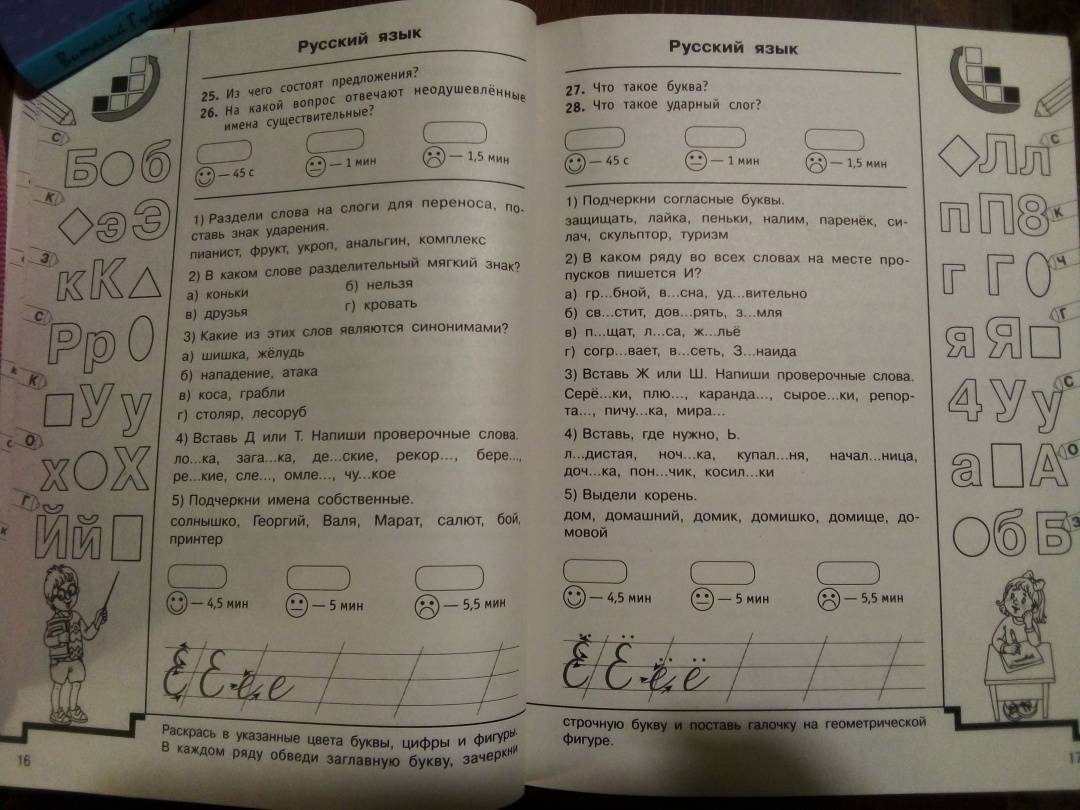 Русский язык
25. Из чего состоят предложения?
26. На какой вопрос отвечают неодушевлённые
имена существительные?
— 45 с
— 1 мин
— 1,5 мин
1) Раздели слова на слоги для переноса, по-
ставь знак ударения.
пианист, фрукт, укроп, анальгин, комплекс
2) В каком слове разделительный мягкий знак?
а) коньки б) нельзя
в) друзья г) кровать
3) Какие из этих слов являются синонимами?
а) шишка, жёлудь
б) нападение, атака
в) коса, грабли
г) столяр, лесоруб
4) Вставь Д или Т. Напиши проверочные слова.
ло...ка, зага...ка, де...ские, рекор..., бере...,
ре...кие, сле..., омле..., чу...кое
5) Подчеркни имена собственные.
солнышко, Георгий, Валя, Марат, салют, бой,
принтер
— 4,5 мин
— 5 мин
— 5,5 мин
Е Е е е
Раскрась в указанные цвета буквы, цифры и фигуры.
В каждом ряду обведи заглавную букву, зачеркни
16
С
Б б
К
э Э
З
к К
С
Р р
К
У у
О
х Х
Г
Й й
Русский язык
27. Что такое буква?
28. Что такое ударный слог?
— 45 с
— 1 мин
— 1,5 мин
1) Подчеркни согласные буквы.
защищать, лайка, пеньки, налим, паренёк, си-
лач, скульптор, туризм
2) В каком ряду во всех словах на месте про-
пусков пишется И?
а) гр...бной, в...сна, уд...вительно
б) св...стит, дов...рять, з...мля
в) п...щат, л...са, ж...льё
г) согр...вает, в...сеть, З...наида
3) Вставь Ж или Ш. Напиши проверочные слова.
Серё...ки, плю..., каранда..., сырое...ки, репор-
та..., пичу...ка, мира...
4) Вставь, где нужно, Ь.
л...дистая, ноч...ка, купал...ня, начал...ница,
доч...ка, пон...чик, косил...ки
5) Выдели корень.
дом, домашний, домик, домишко, домище, до-
мовой
— 4,5 мин
— 5 мин
— 5,5 мин
Ё Ё ё ё
строчную букву и поставь галочку на геометрической
фигуре.
17
С
Л л
К
п П 8
Ч
г Г
Г
я Я
С
4 У у
О
а А
З
б Б